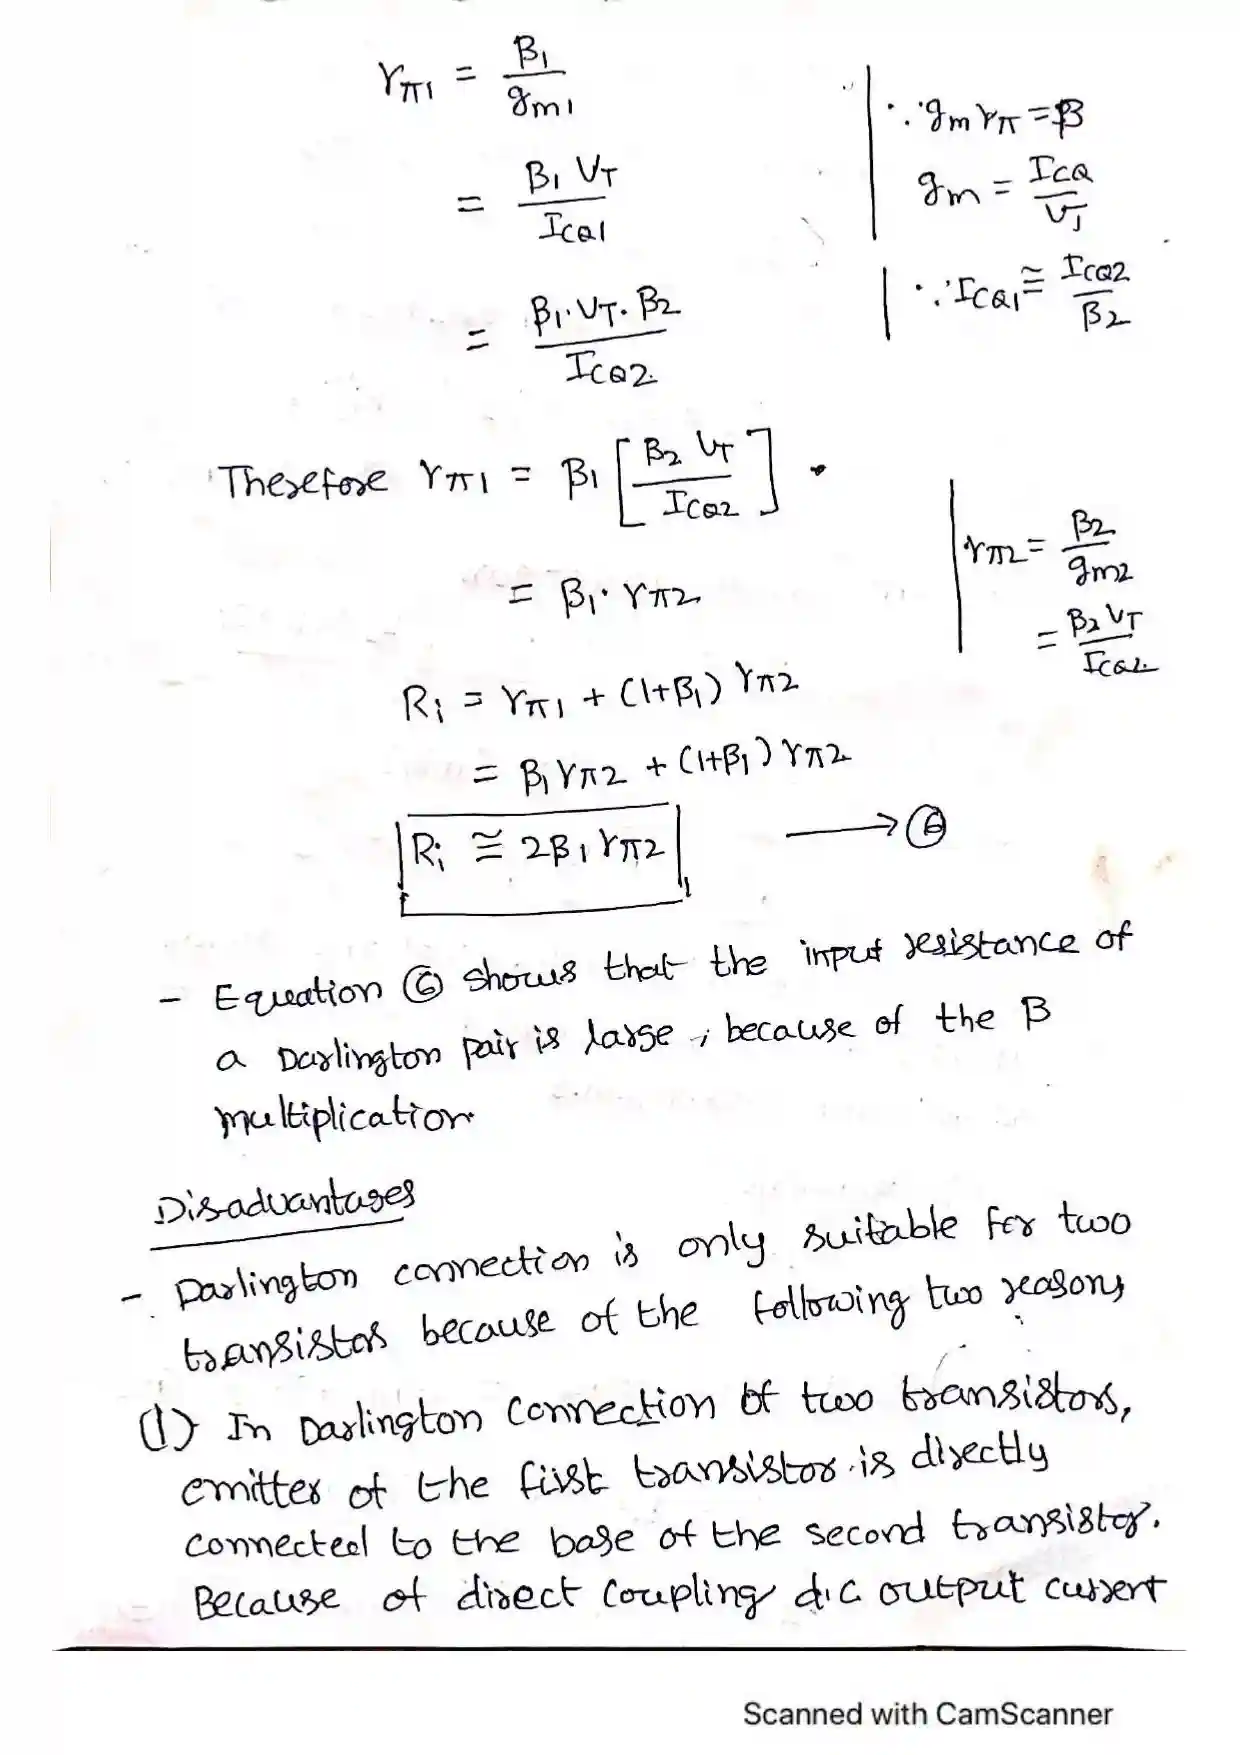 rπ1 = β1/gm1
∵ gm rπ = β
= β1 VT/ICQ1
gm = ICQ/VT
= β1·VT·β2/ICQ2
∵ ICQ1 ≅ ICQ2/β2
Therefore rπ1 = β1 [β2 VT/ICQ2]
= β1·rπ2
rπ2 = β2/gm2
= β2 VT/ICQ2
Ri = rπ1 + (1+β1) rπ2
= β1 rπ2 + (1+β1) rπ2
Ri ≅ 2β1 rπ2 → ⑥
- Equation ⑥ shows that the input resistance of
a Darlington pair is large, because of the β
multiplication
Disadvantages
- Darlington connection is only suitable for two
transistors because of the following two reasons
(1) In Darlington Connection of two transistors,
emitter of the first transistor is directly
connected to the base of the second transistor.
Because of direct coupling d.c output current
Scanned with CamScanner